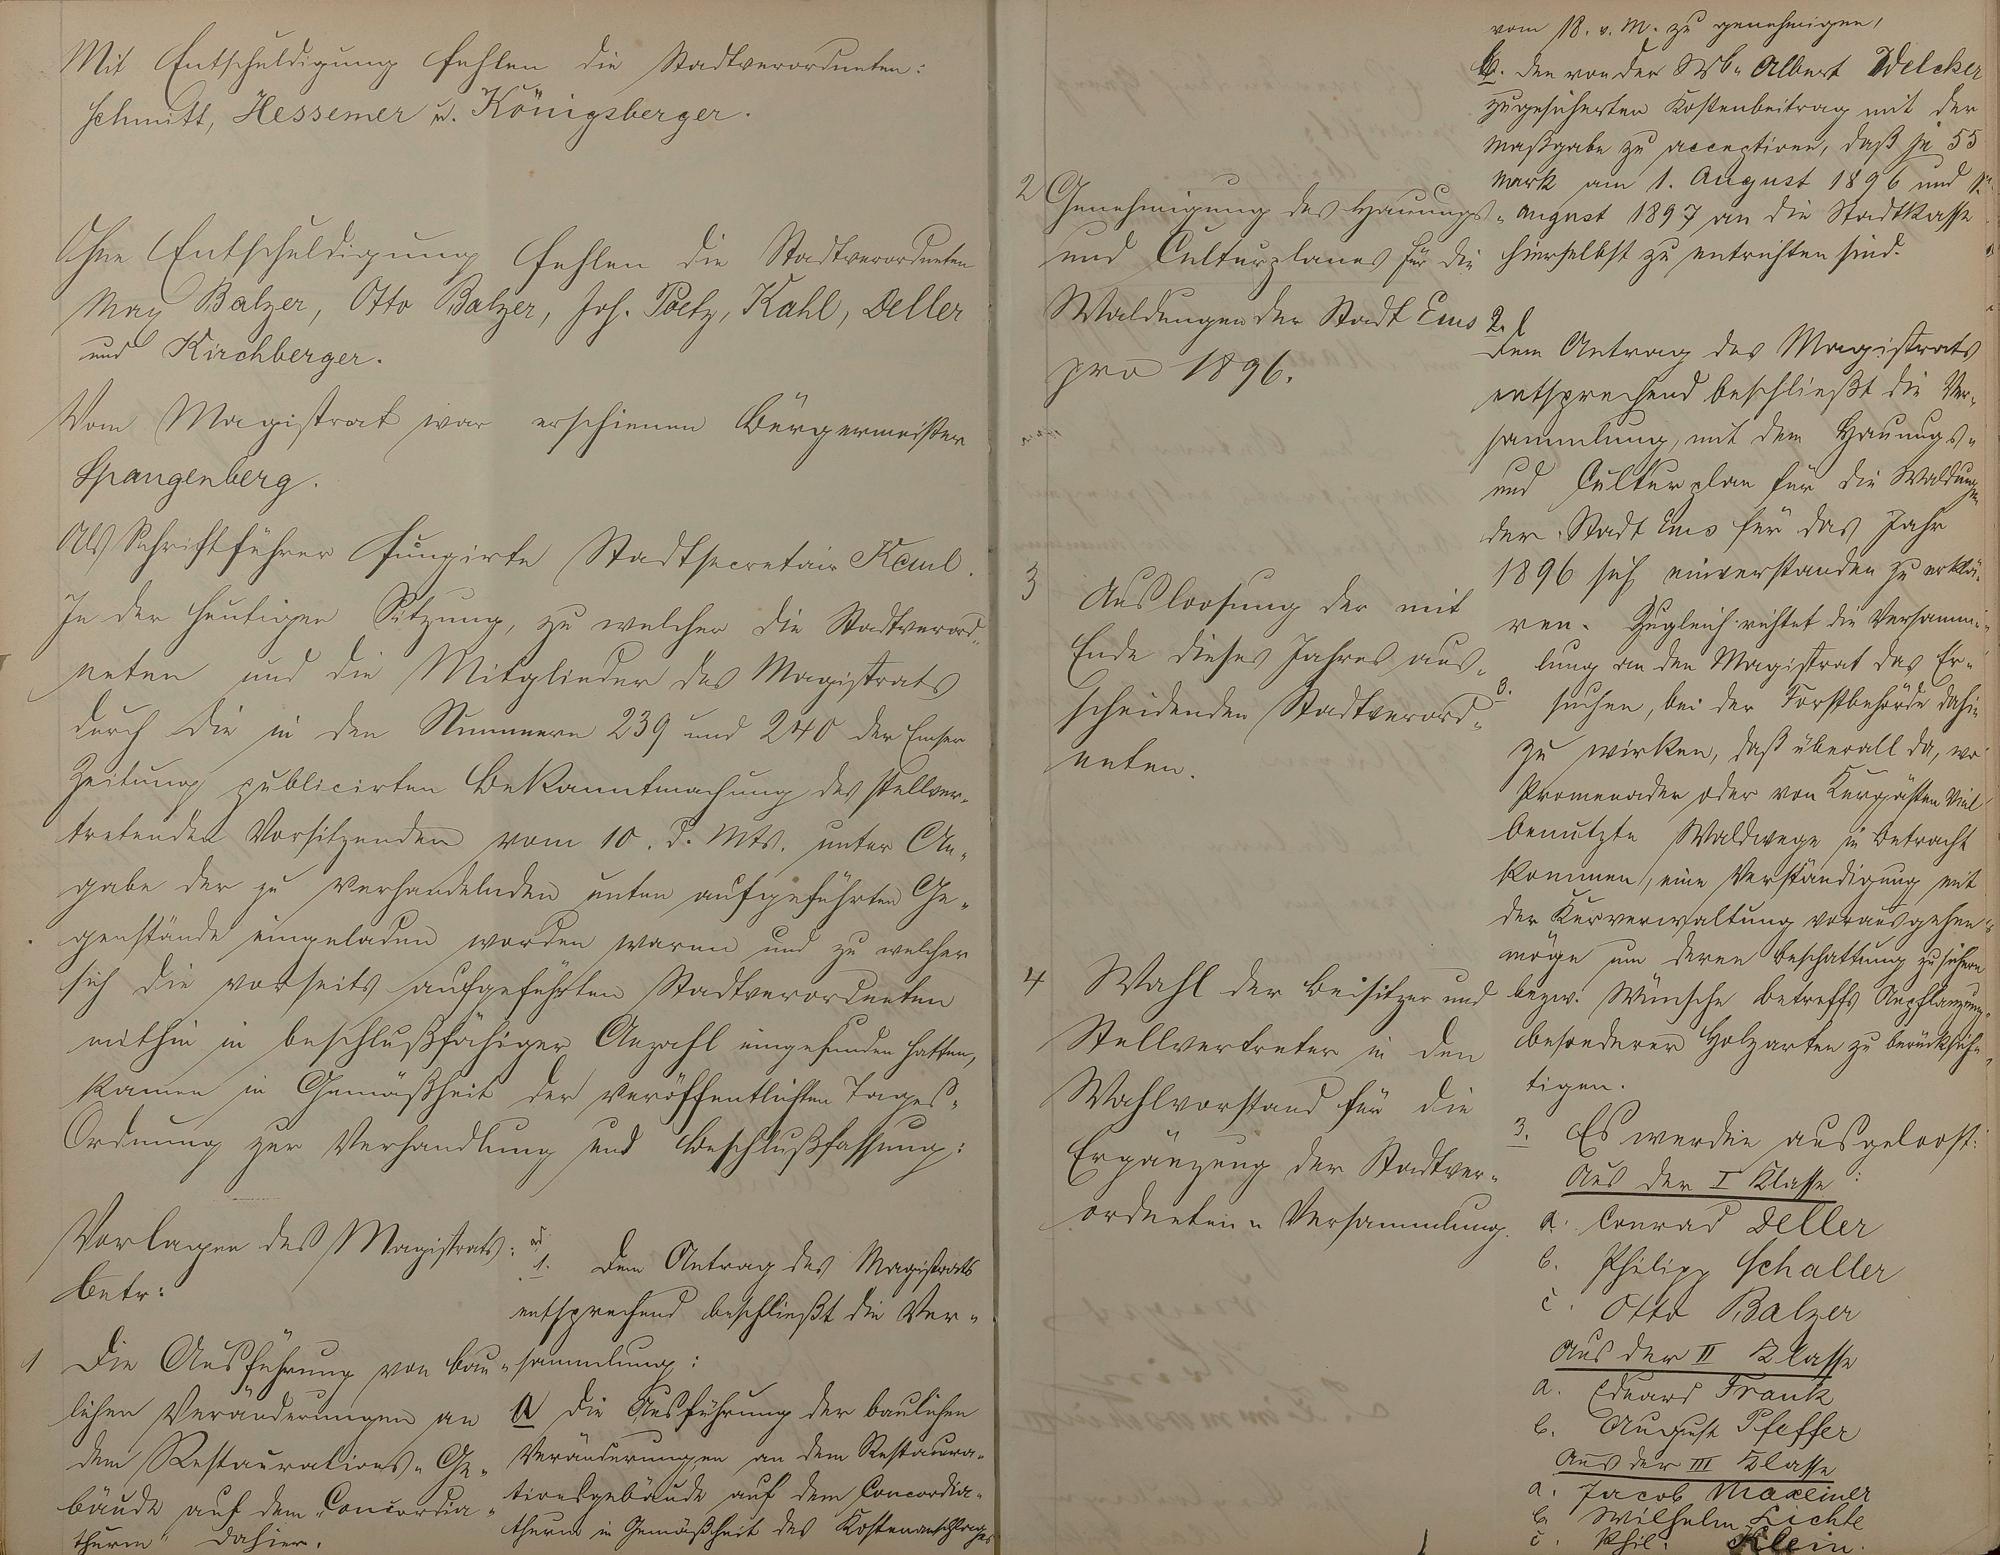 Mit Entschuldigung fehlen die Stadtverordneten:
Schmitt, Hessemer u. Königsberger.
Ohne Entschuldigung fehlen die Stadtverordneten
Max Balzer, Otto Balzer, Joh. Poetz, Kahl, Deller
und Kirchberger.
Vom Magistrat war erschienen Bürgermeister
Spangenberg.
Als Schriftführer fungirte Stadtsecretair Kaul.
In der heutigen Sitzung, zu welcher die Stadtverord-
neten und die Mitglieder des Magistrats
durch die in den Nummern 239 und 240 der Emser
Zeitung publicirten Bekanntmachung des stellver-
tretenden Vorsitzenden vom 10. d. Mts. unter An-
gabe der zu verhandelnden unten aufgeführten Ge-
genstände eingeladen worden waren und zu welcher
sich die vorseits aufgeführten Stadtverordneten
mithin in beschlußfähiger Anzahl eingefunden hatten,
kamen in Gemäßheit der veröffentlichten Tages-
Ordnung zur Verhandlung und Beschlußfassung:
Vorlagen des Magistrats,
betr:
1 Die Ausführung von bau-
lichen Veränderungen an
dem Restaurations-Ge-
bäude auf dem "Concordia-
thurm" dahier.
ad
1. Dem Antrag des Magistrats
entsprechend beschließt die Ver-
sammlung:
a die Ausführung der baulichen
Veränderungen an dem Restaura-
tionsgebäude auf dem Concordia-
thurm in Gemäßheit des Kostenanschlages
vom 18. v. M. zu genehmigen,
b. den von der Wb. Albert Welcker
zugesicherten Kostenbeitrag mit der
Maßgabe zu acceptiren, daß je 55
Mark am 1. August 1896 und 1.
August 1897 an die Stadtkasse
hierselbst zu entrichten sind.
2 Genehmigung des Hauungs-
und Culturplanes für die
Waldungen der Stadt Ems
pro 1896.
2.
Dem Antrag des Magistrats
entsprechend beschließt die Ver-
sammlung, mit dem Hauungs-
und Culturplan für die Waldungen
der Stadt Ems für das Jahr
1896 sich einverstanden zu erklä-
ren. Zugleich richtet die Versamm-
lung an den Magistrat das Er-
suchen, bei der Forstbehörde dahin
zu wirken, daß überall da, wo
Promenaden oder von Kurgästen viel
benutzte Waldwege in Betracht
kommen, eine Verständigung mit
der Kurverwaltung vorausgehen
möge um deren Beschattung zu sichern
bezw. Wünsche betreffs Anpflanzung
besonderer Holzarten zu berücksich-
tigen.
3 Ausloosung der mit
Ende dieses Jahres aus-
scheidenden Stadtverord-
neten.
3. Es werden ausgeloost:
Aus der I Klasse:
a. Conrad Deller
b. Philipp Schaller
c. Otto Balzer
Aus der II Klasse
a. Eduard Frank
b. August Pfeffer
Aus der III Klasse
a. Jacob Maxeiner
b. Wilhelm Lichte
c. Phil. Klein.
4 Wahl der Beisitzer und
Stellvertreter in den
Wahlvorstand für die
Ergänzung der Stadtver-
ordneten-Versammlung.